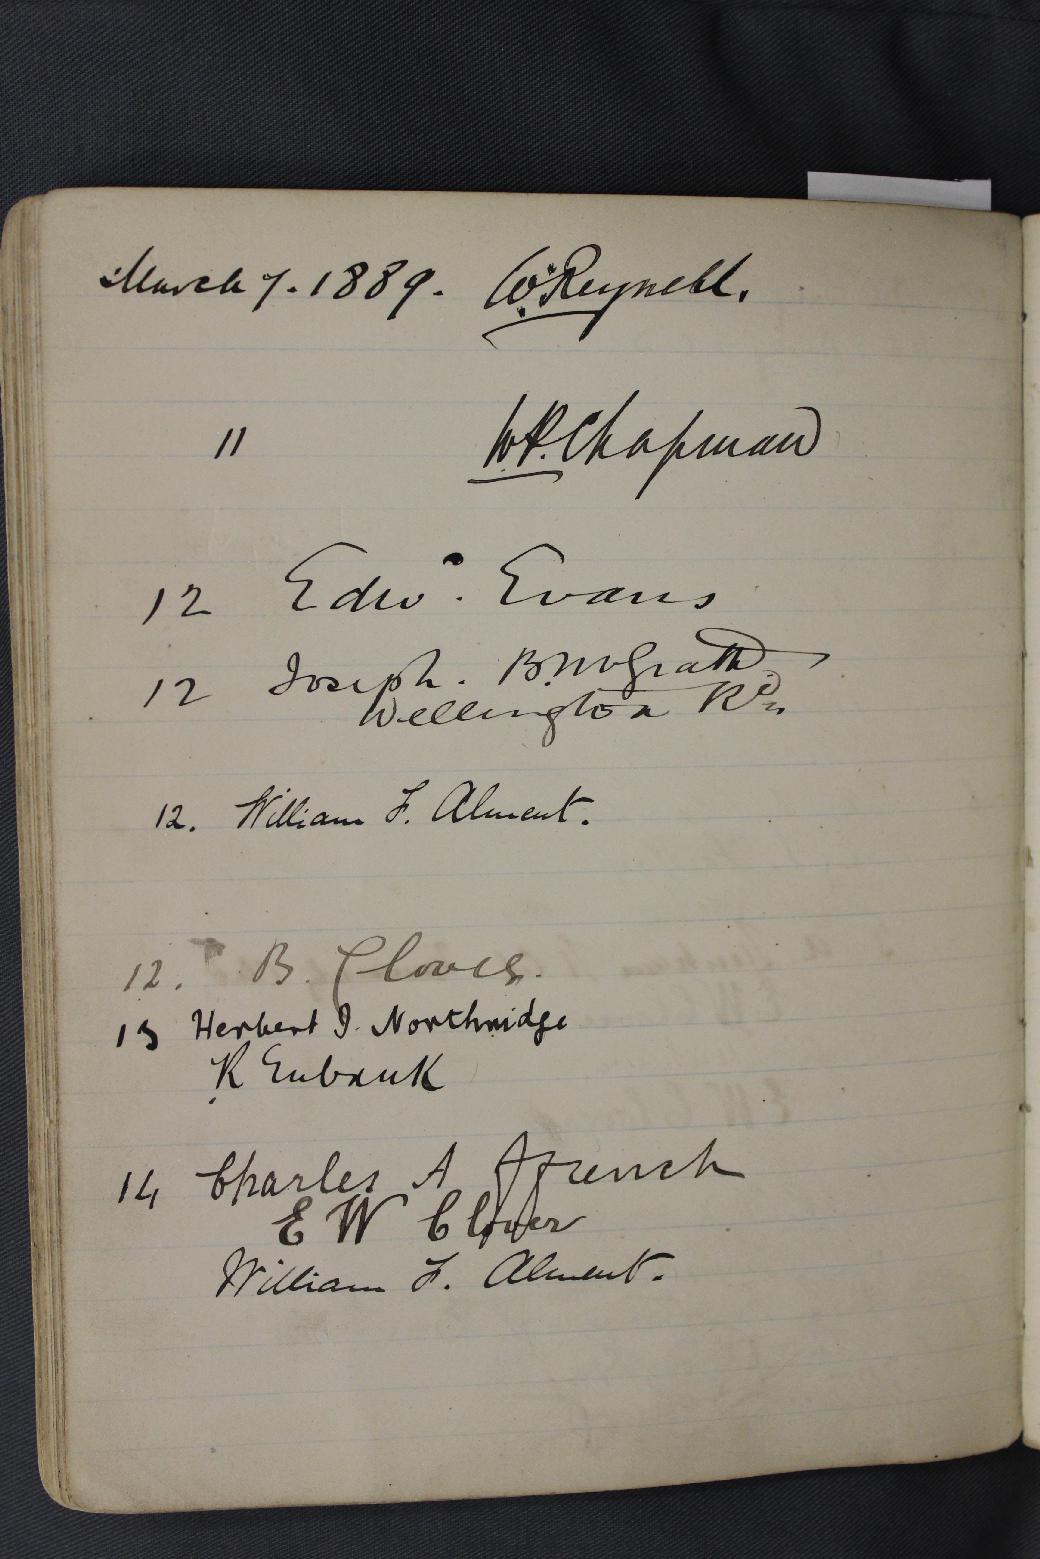 March 7. 1889. Wm Reynell.
11 W.P. Chapman
12 Edwd. Evans
12 Joseph. B. McGrath
Wellington Rd.
12. William F. Alment.
12. B. Clover.
13 Herbert I. Northridge
R Eubank
14 Charles A ffrench
E W Clover
William F. Alment.